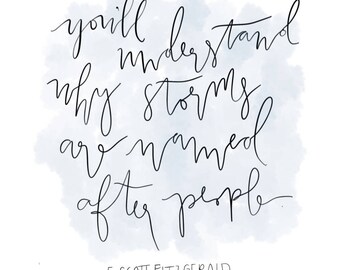 you'll
understand
why storms
are named
after people
F. SCOTT FITZGERALD